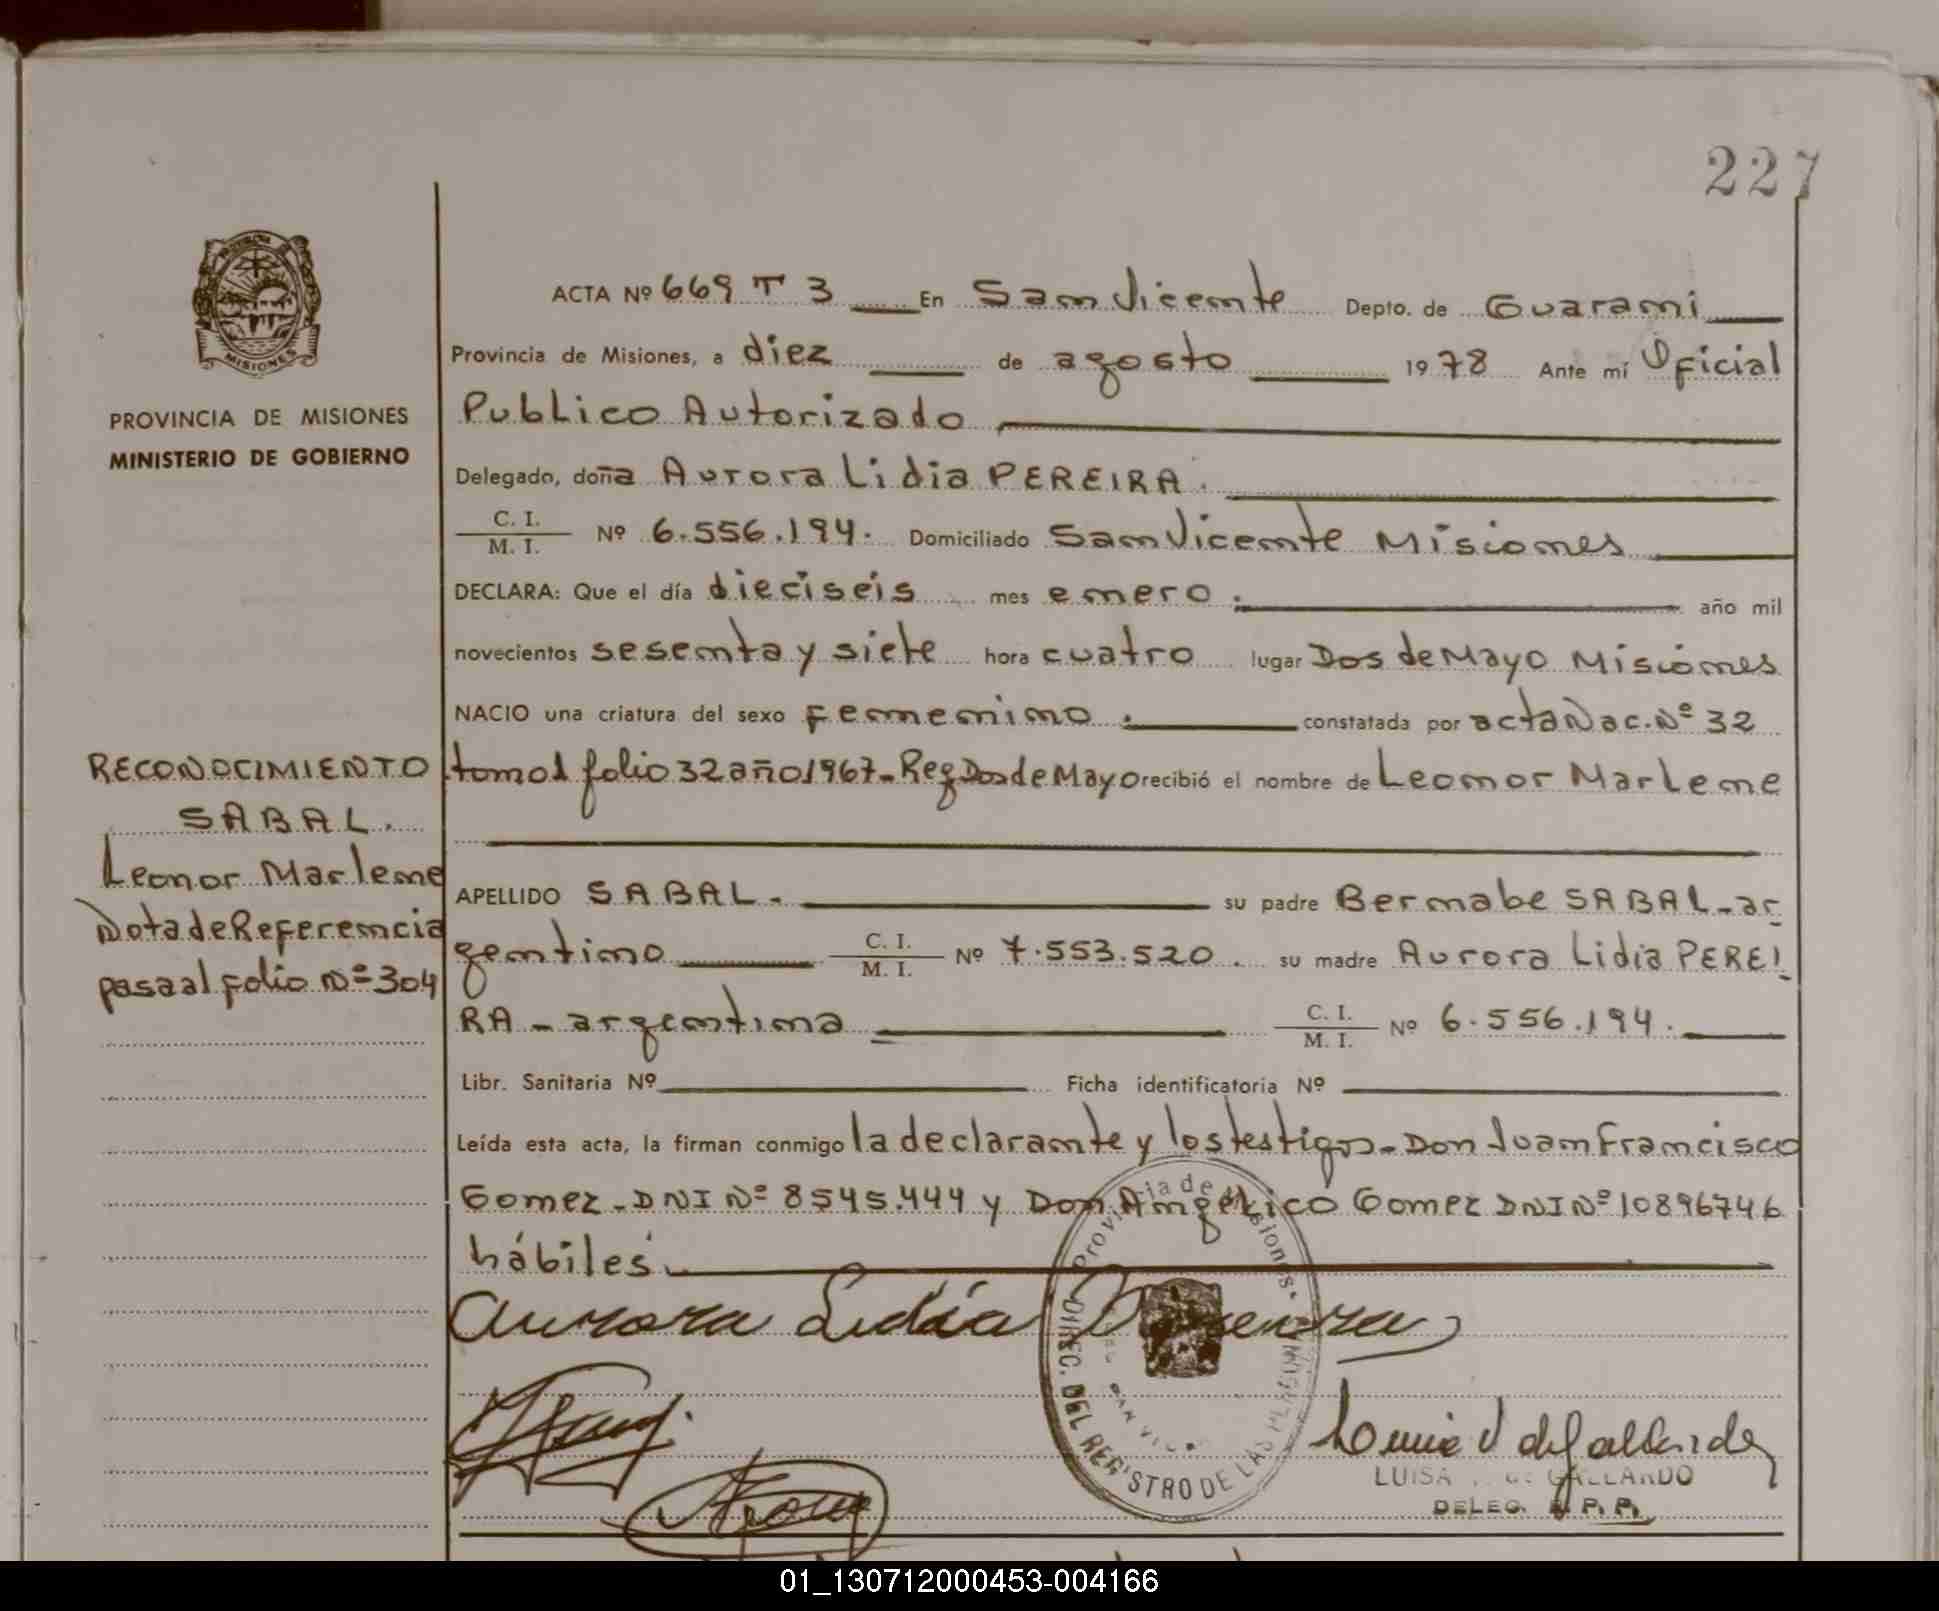 227
PROVINCIA DE MISIONES
MINISTERIO DE GOBIERNO
ACTA Nº 669 T 3 En San Vicente Depto. de Guarani
Provincia de Misiones, a diez de agosto 1978 Ante mí Oficial
Publico Autorizado
Delegado, doña Aurora Lidia PEREIRA.
C. I.
M. I. Nº 6.556.194. Domiciliado San Vicente Misiones
DECLARA: Que el día dieciseis mes enero. año mil
novecientos sesenta y siete hora cuatro lugar Dos de Mayo Misiones
NACIO una criatura del sexo femenino. constatada por acta Nac. Nº 32
tomo 1 folio 32 año 1967-Reg Dos de Mayo recibió el nombre de Leonor Marlene
APELLIDO SABAL. su padre Bernabe SABAL-ar
gentino C. I.
M. I. Nº 7.553.520. su madre Aurora Lidia PEREI
RA-argentina C. I.
M. I. Nº 6.556.194.
Libr. Sanitaria Nº Ficha identificatoria Nº
Leída esta acta, la firman conmigo la declarante y los testigos-Don Juan Francisco
Gomez-DNI Nº 8545.444 y Don Angelico Gomez DNI Nº 10896746
hábiles.
Aurora Lidia Pereira
RECONOCIMIENTO
SABAL.
Leonor Marlene
Nota de Referencia
pasa al folio Nº 304
Provincia de Misiones
DIREC. DEL REGISTRO DE LAS PERSONAS
LUISA GALLARDO
DELEG. R. P. P.
MISIONES
01_130712000453-004166